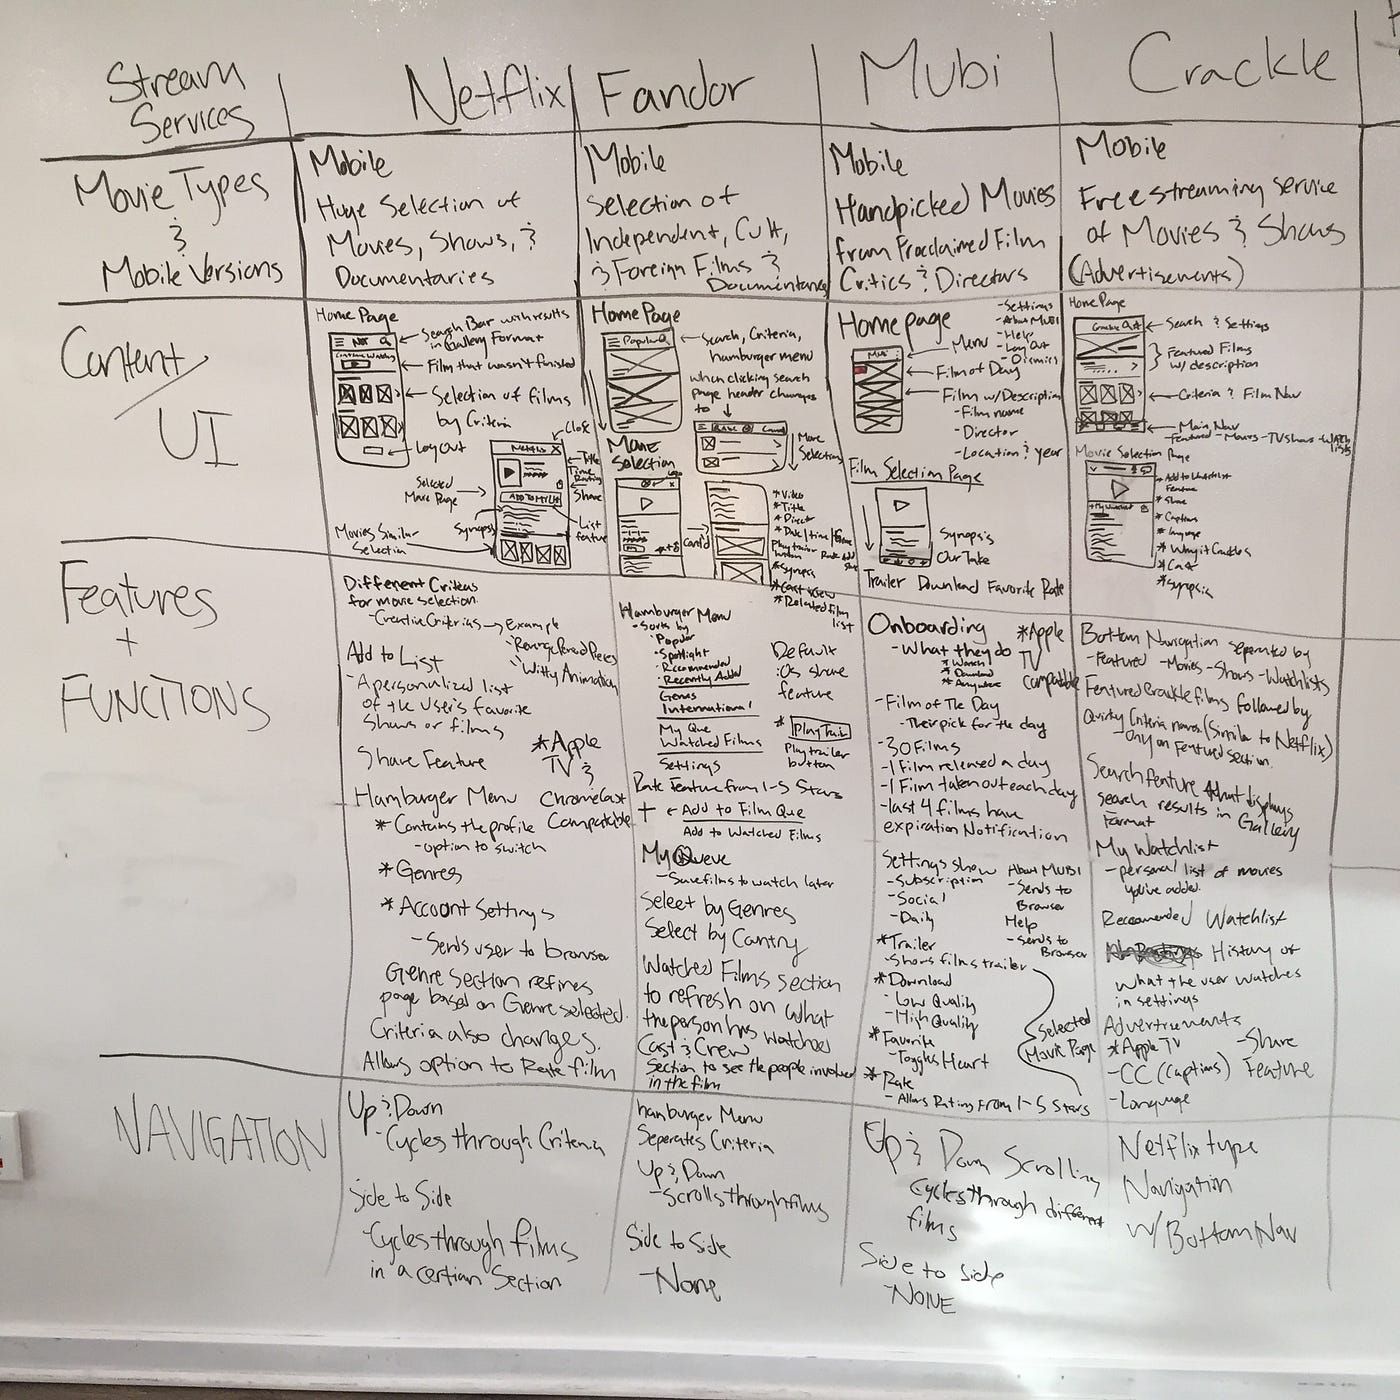 Stream
Services
Netflix
Fandor
Mubi
Crackle
Movie Types
&
Mobile Versions
Mobile
Huge Selection of
Movies, Shows, &
Documentaries
Mobile
Selection of
Independent, Cult,
& Foreign Films &
Documentaries
Mobile
Handpicked Movies
from Proclaimed Film
Critics & Directors
Mobile
Free streaming service
of Movies & Shows
(Advertisements)
Content/
UI
Home Page
Search Bar with results
in Gallery Format
Film that wasn't finished
Selection of films
by Criteria
Log Out
Close
Netflix X
Title
Share
ADD TO MY LIST
List
feature
Selected
Movie Page
Synopsis
Movies Similar
Selection
Home Page
Popular
Search, Criteria,
hamburger menu
when clicking search
page header changes
to
More
Selection
Movie
Selection
Cont'd
* Video
* Title
* Direct
* Synopsis
* Cast & Crew
* Related film
list
Homepage
MUBI
- Settings
- About MUBI
- Help
- Log Out
Menu
Film of Day
Film w/Description
- Film name
- Director
- Location & year
Film Selection Page
Synopsis
Our Take
Trailer Download Favorite Rate
Home Page
Crackle
Search & Settings
Featured Films
w/ description
Criteria & Film Nav
Main Nav
- Featured - Movies - TV Shows - Watch
lists
Movie Selection Page
* Add to Watchlist
Feature
* Share
* Captions
* Language
* Why it Crackles
* Cast
* Synopsis
Features
+
FUNCTIONS
Different Criterias
for movie selection.
- Creative Criterias → Example
Witty Animation
Add to List
- A personalized list
of the User's favorite
Shows or films
Share Feature
* Apple
TV &
Chromecast
Compatable
Hamburger Menu
* Contains the profile
- option to switch
* Genres
* Account Settings
- Sends user to browser
Genre section refines
page based on Genre selected.
Criteria also changes.
Allows option to Rate film
Hamburger Menu
- Sorts by
Popular
Spotlight
Recommended
Recently Added
Genres
International
My Que
Watched Films
Settings
Default
iOS share
feature
* Play Trail
Play trailer
button
Rate Feature from 1-5 Stars
+ ← Add to Film Que
Add to Watched Films
My Queue
- Save films to watch later
Select by Genres
Select by Country
Watched Films section
to refresh on what
the person has watched
Cast & Crew
Section to see the people involved
in the film
Onboarding
- What they do
* Watch
* Download
* Anywhere
* Apple
TV
compatable
- Film of The Day
- Their pick for the day
- 30 Films
- 1 Film released a day
- 1 Film taken out each day
- last 4 films have
expiration Notification
Settings show
- Subscription
- Social
- Daily
About MUBI
- Sends to
Browser
Help
- Sends to
Browser
* Trailer
- Shows films trailer
* Download
- Low Quality
- High Quality
* Favorite
- Toggles Heart
* Rate
- Allows Rating From 1-5 Stars
Selected
Movie Page
Bottom Navigation seperated by
- Featured - Movies - Shows - Watchlists
Featured Crackle films followed by
Quirky Criteria names (Similar to Netflix)
- Only on Featured section.
Search feature that displays
search results in Gallery
Format
My Watchlist
- personal list of movies
you've added.
Recommended Watchlist
History of
what the user watches
in settings
Advertisements
* Apple TV
- Share
Feature
- CC (Captions)
- Language
NAVIGATION
Up & Down
- Cycles through Criteria
Side to Side
- Cycles through films
in a certian Section
hamburger Menu
Seperates Criteria
Up & Down
- Scrolls through films
Side to Side
- None
Up & Down Scrolling
cycles through different
films
Side to Side
- NONE
Netflix type
Navigation
w/ Bottom Nav